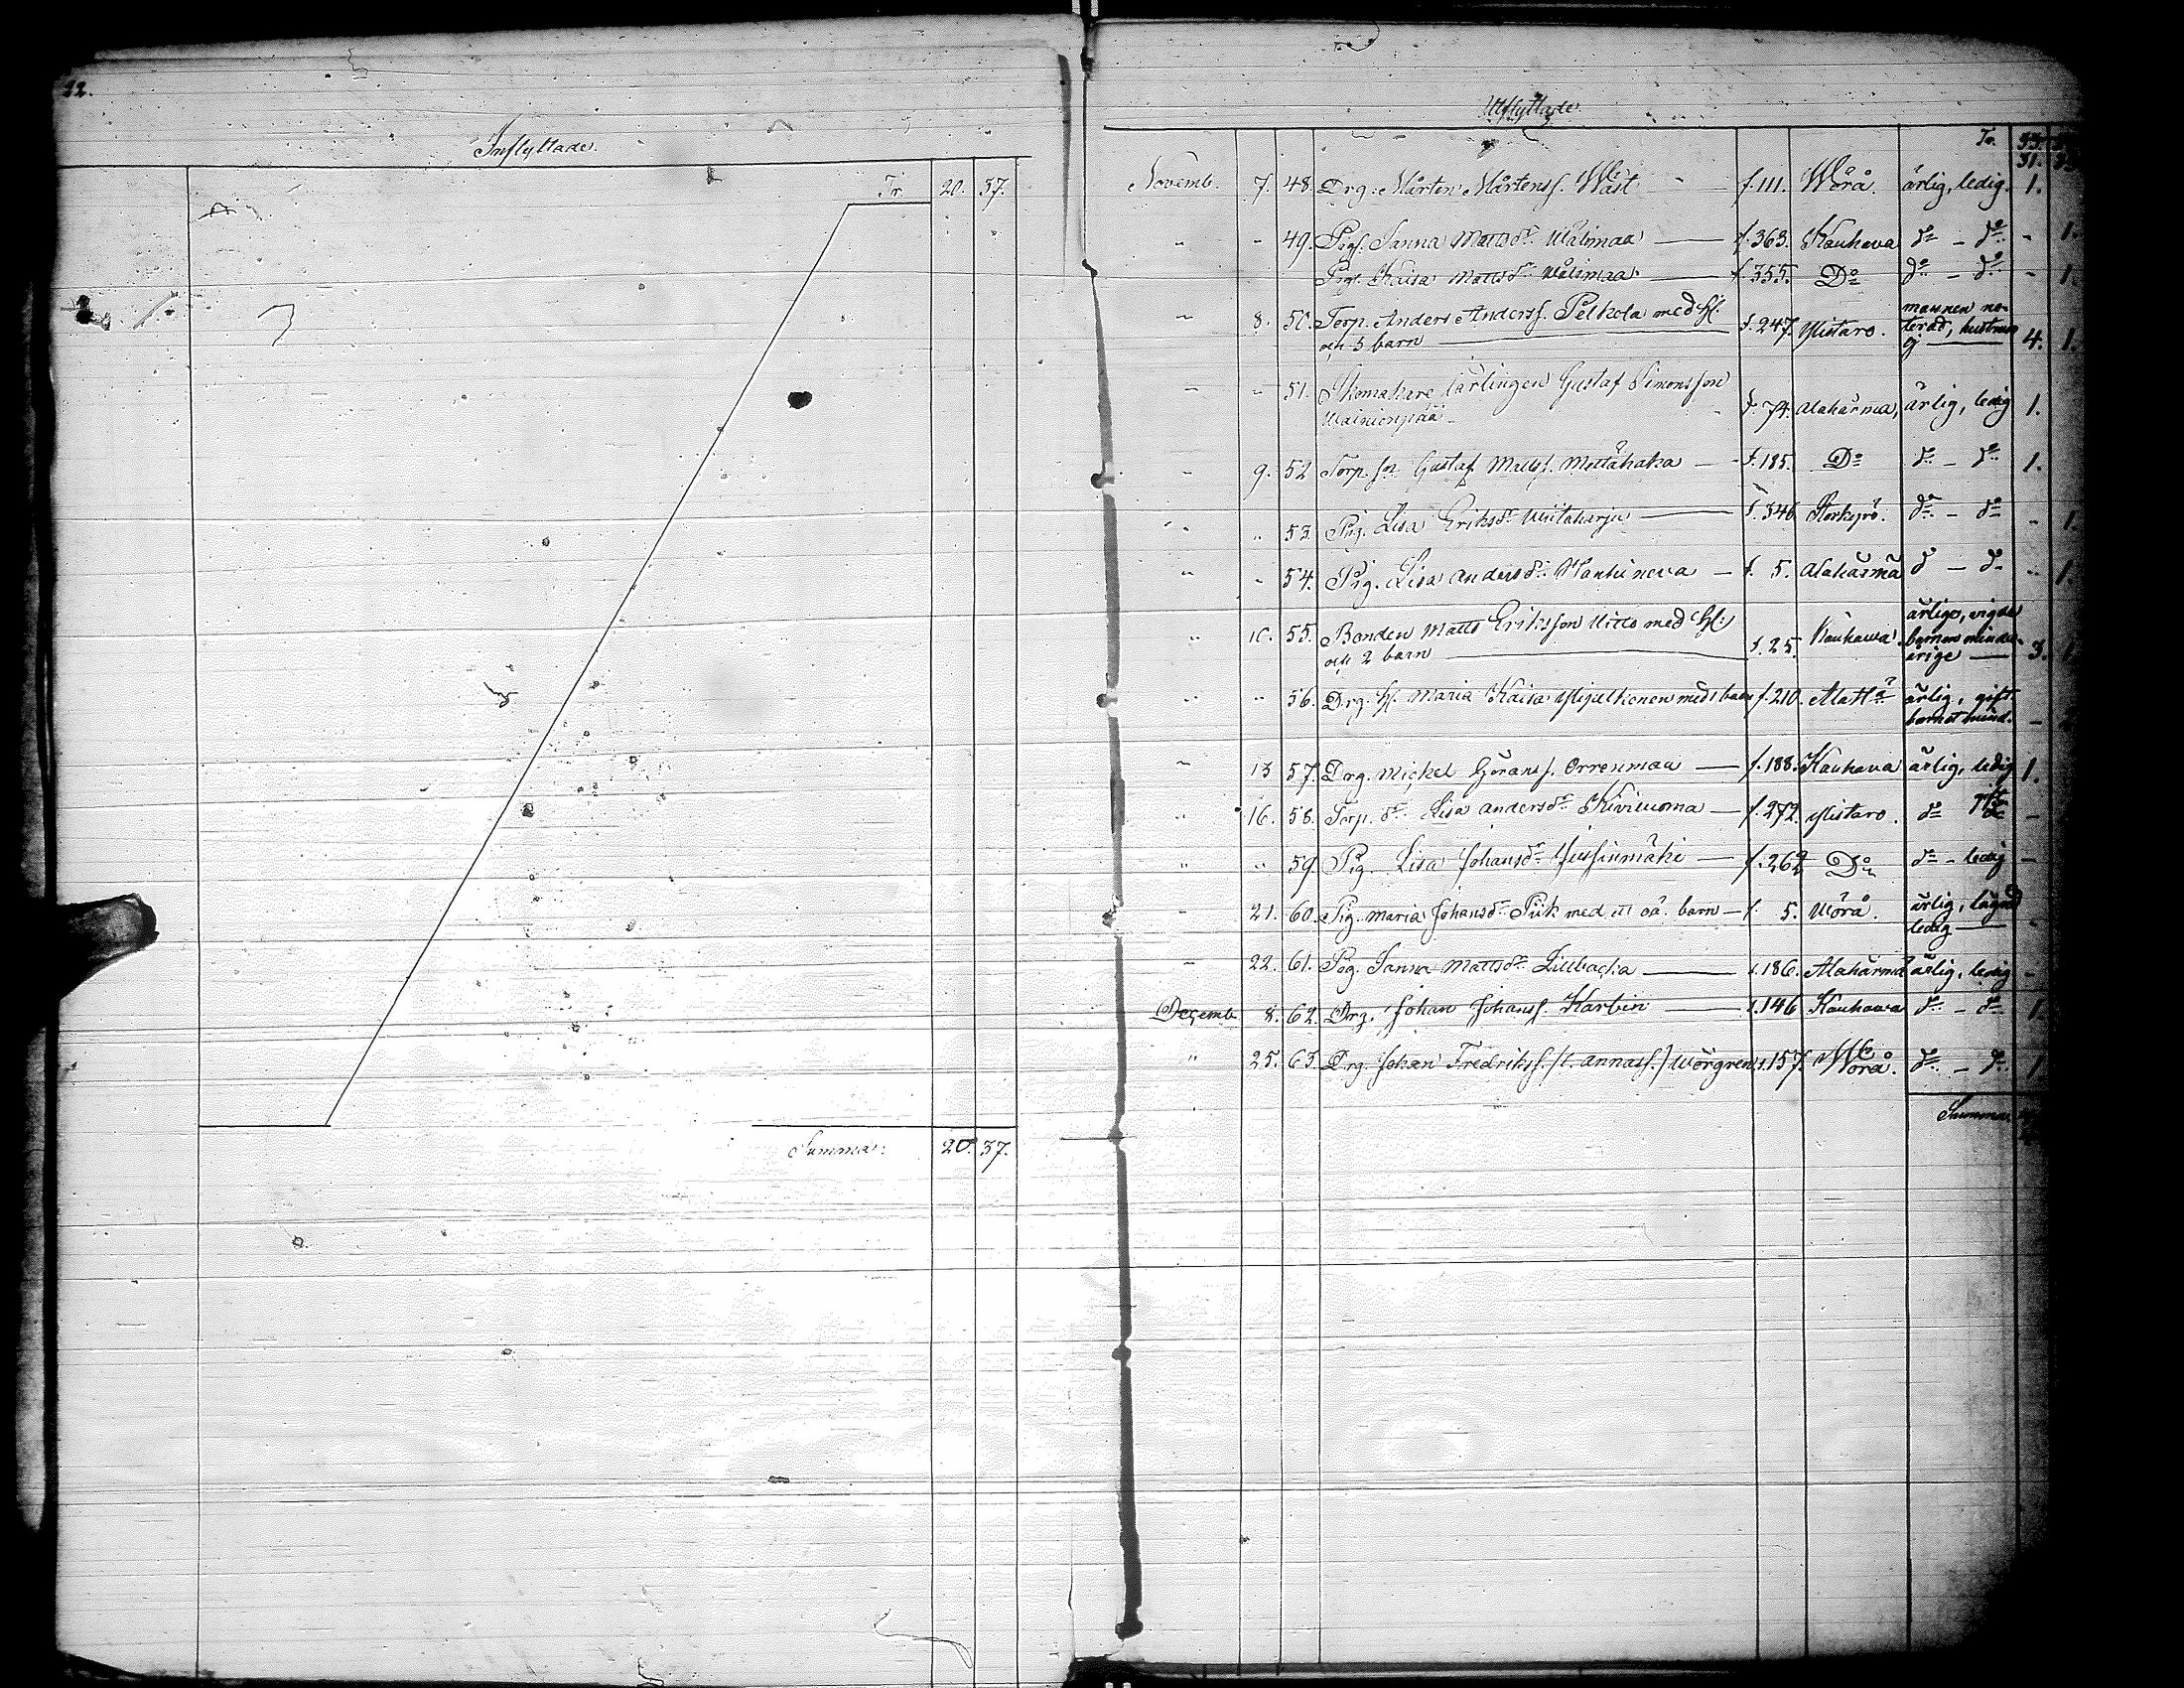 22.
Inflyttade.
Tr. 20. 37.
Summa: 20. 37.
Utflyttade.
Tr.
31.
Novemb. 7. 48. Drg. Mårten Mårtensf. Wäst f. 111. Wörå. ärlig, ledig. 1.
" " 49. Pig. Sanna Mattsdr. Wälimaa f. 363. Kauhava do - do - 1.
Pig. Kaisa Mattsdr. Wälimaa f. 355. Do do - do - 1.
" 8. 50. Torp. Anders Andersf. Pelkola med H. f. 247. Ylistaro. mannen no-
och 3 barn terad, hustrun
ej 4. 1.
" " 51. Skomakare lärlingen Gustaf Simonsson
Wainionpää f. 74. Alahärmä, ärlig, ledig 1.
" 9. 52 Torp. sn. Gustaf Mattsf. f. 185. Do do - do 1.
" " 53. Pig. Lisa Eriksdr. f. 346 Storkyrö. do - do - 1.
" " 54. Pig. Lisa Andersdr. Hanhineva f. 5. Alahärmä do - do " 1.
" 10. 55. Bonden Matts Eriksson Uitto med H.
och 2 barn f. 25. Kauhawa. ärliga, vigde
barnen minder-
årige 3. 1.
" " 56. Drg. H. Maria Kaisa med 1 barn f. 210. ärlig, gift
barnet mind. -
" 13 57. Drg. Mickel Göransf. Orrenmaa f. 188. Kauhava ärlig, ledig 1.
" 16. 58. Torp. dr. Lisa Andersdr. Kiviluoma f. 272. Ylistaro. do -
" " 59. Pig. Lisa Johansdr. Jussinmäki f. 262 Do do - ledig -
" 21. 60. Pig. Maria Johansdr. Piik med ett oä. barn f. 5. Wörå. ärlig, lägrad
ledig -
" 22. 61. Pig. Sanna Mattsdr. Lillbacka f. 186. Alahärmä ärlig, ledig -
Decemb. 8. 62. Drg. Johan Johansf. Karbin f. 146 Kauhawa do - do 1.
" 25. 63. Drg. Johan Fredriksf. (l. Annasf.) Wörgren f. 157. Wörå. do - do 1.
Summa.